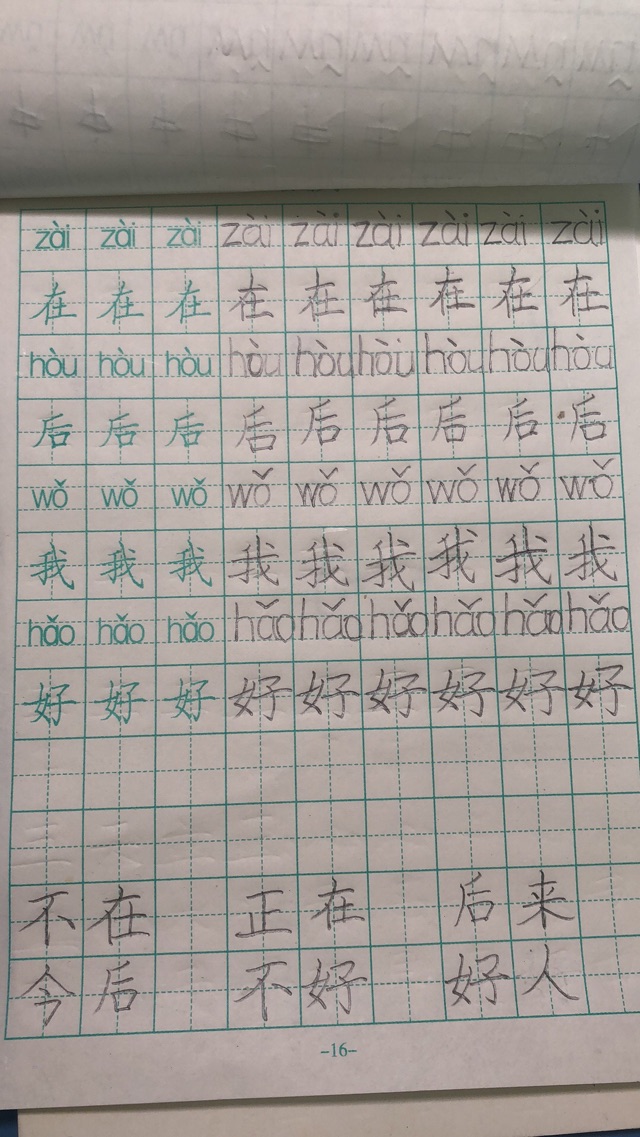 zài zài zài zài zài zài zài zài zài
在 在 在 在 在 在 在 在 在
hòu hòu hòu hòu hòu hòu hòu hòu hòu
后 后 后 后 后 后 后 后 后
wǒ wǒ wǒ wǒ wǒ wǒ wǒ wǒ wǒ
我 我 我 我 我 我 我 我 我
hǎo hǎo hǎo hǎo hǎo hǎo hǎo hǎo hǎo
好 好 好 好 好 好 好 好 好
不在 正在 后来
今后 不好 好人
-16-